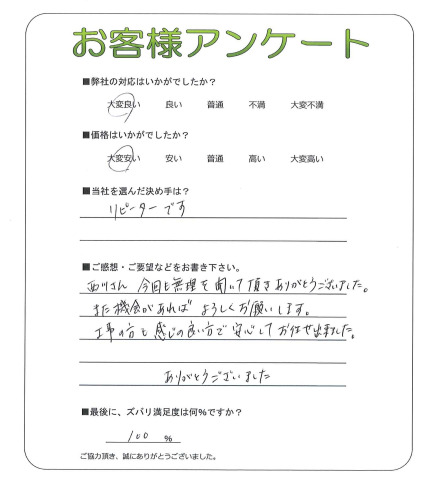 お客様アンケート
■弊社の対応はいかがでしたか？
大変良い 良い 普通 不満 大変不満
■価格はいかがでしたか？
大変安い 安い 普通 高い 大変高い
■当社を選んだ決め手は？
リピーターです
■ご感想・ご要望などをお書き下さい。
西川さん 今回も無理を聞いて頂きありがとうございました。
また機会があれば よろしくお願いします。
工事の方も感じの良い方で安心してお任せ出来ました。
ありがとうございました
■最後に、ズバリ満足度は何%ですか？
100 %
ご協力頂き、誠にありがとうございました。